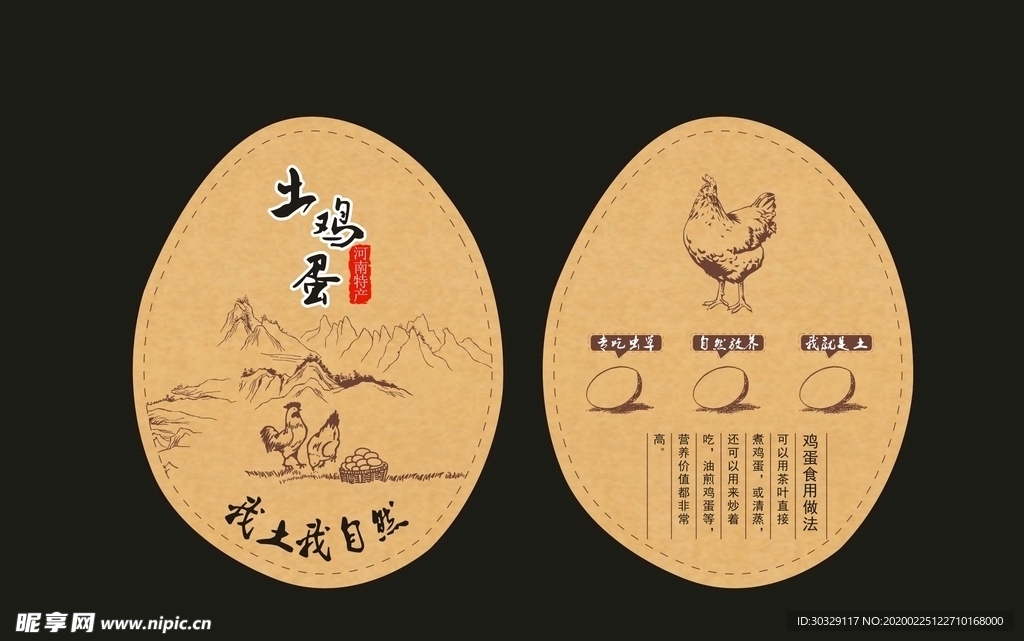 土鸡蛋
河南特产
我土我自然
专吃虫草
自然放养
我就是土
鸡蛋食用做法
可以用茶叶直接
煮鸡蛋，或清蒸，
还可以用来炒着
吃，油煎鸡蛋等，
营养价值都非常
高。
昵享网 www.nipic.cn
ID:30329117 NO:20200225122710168000